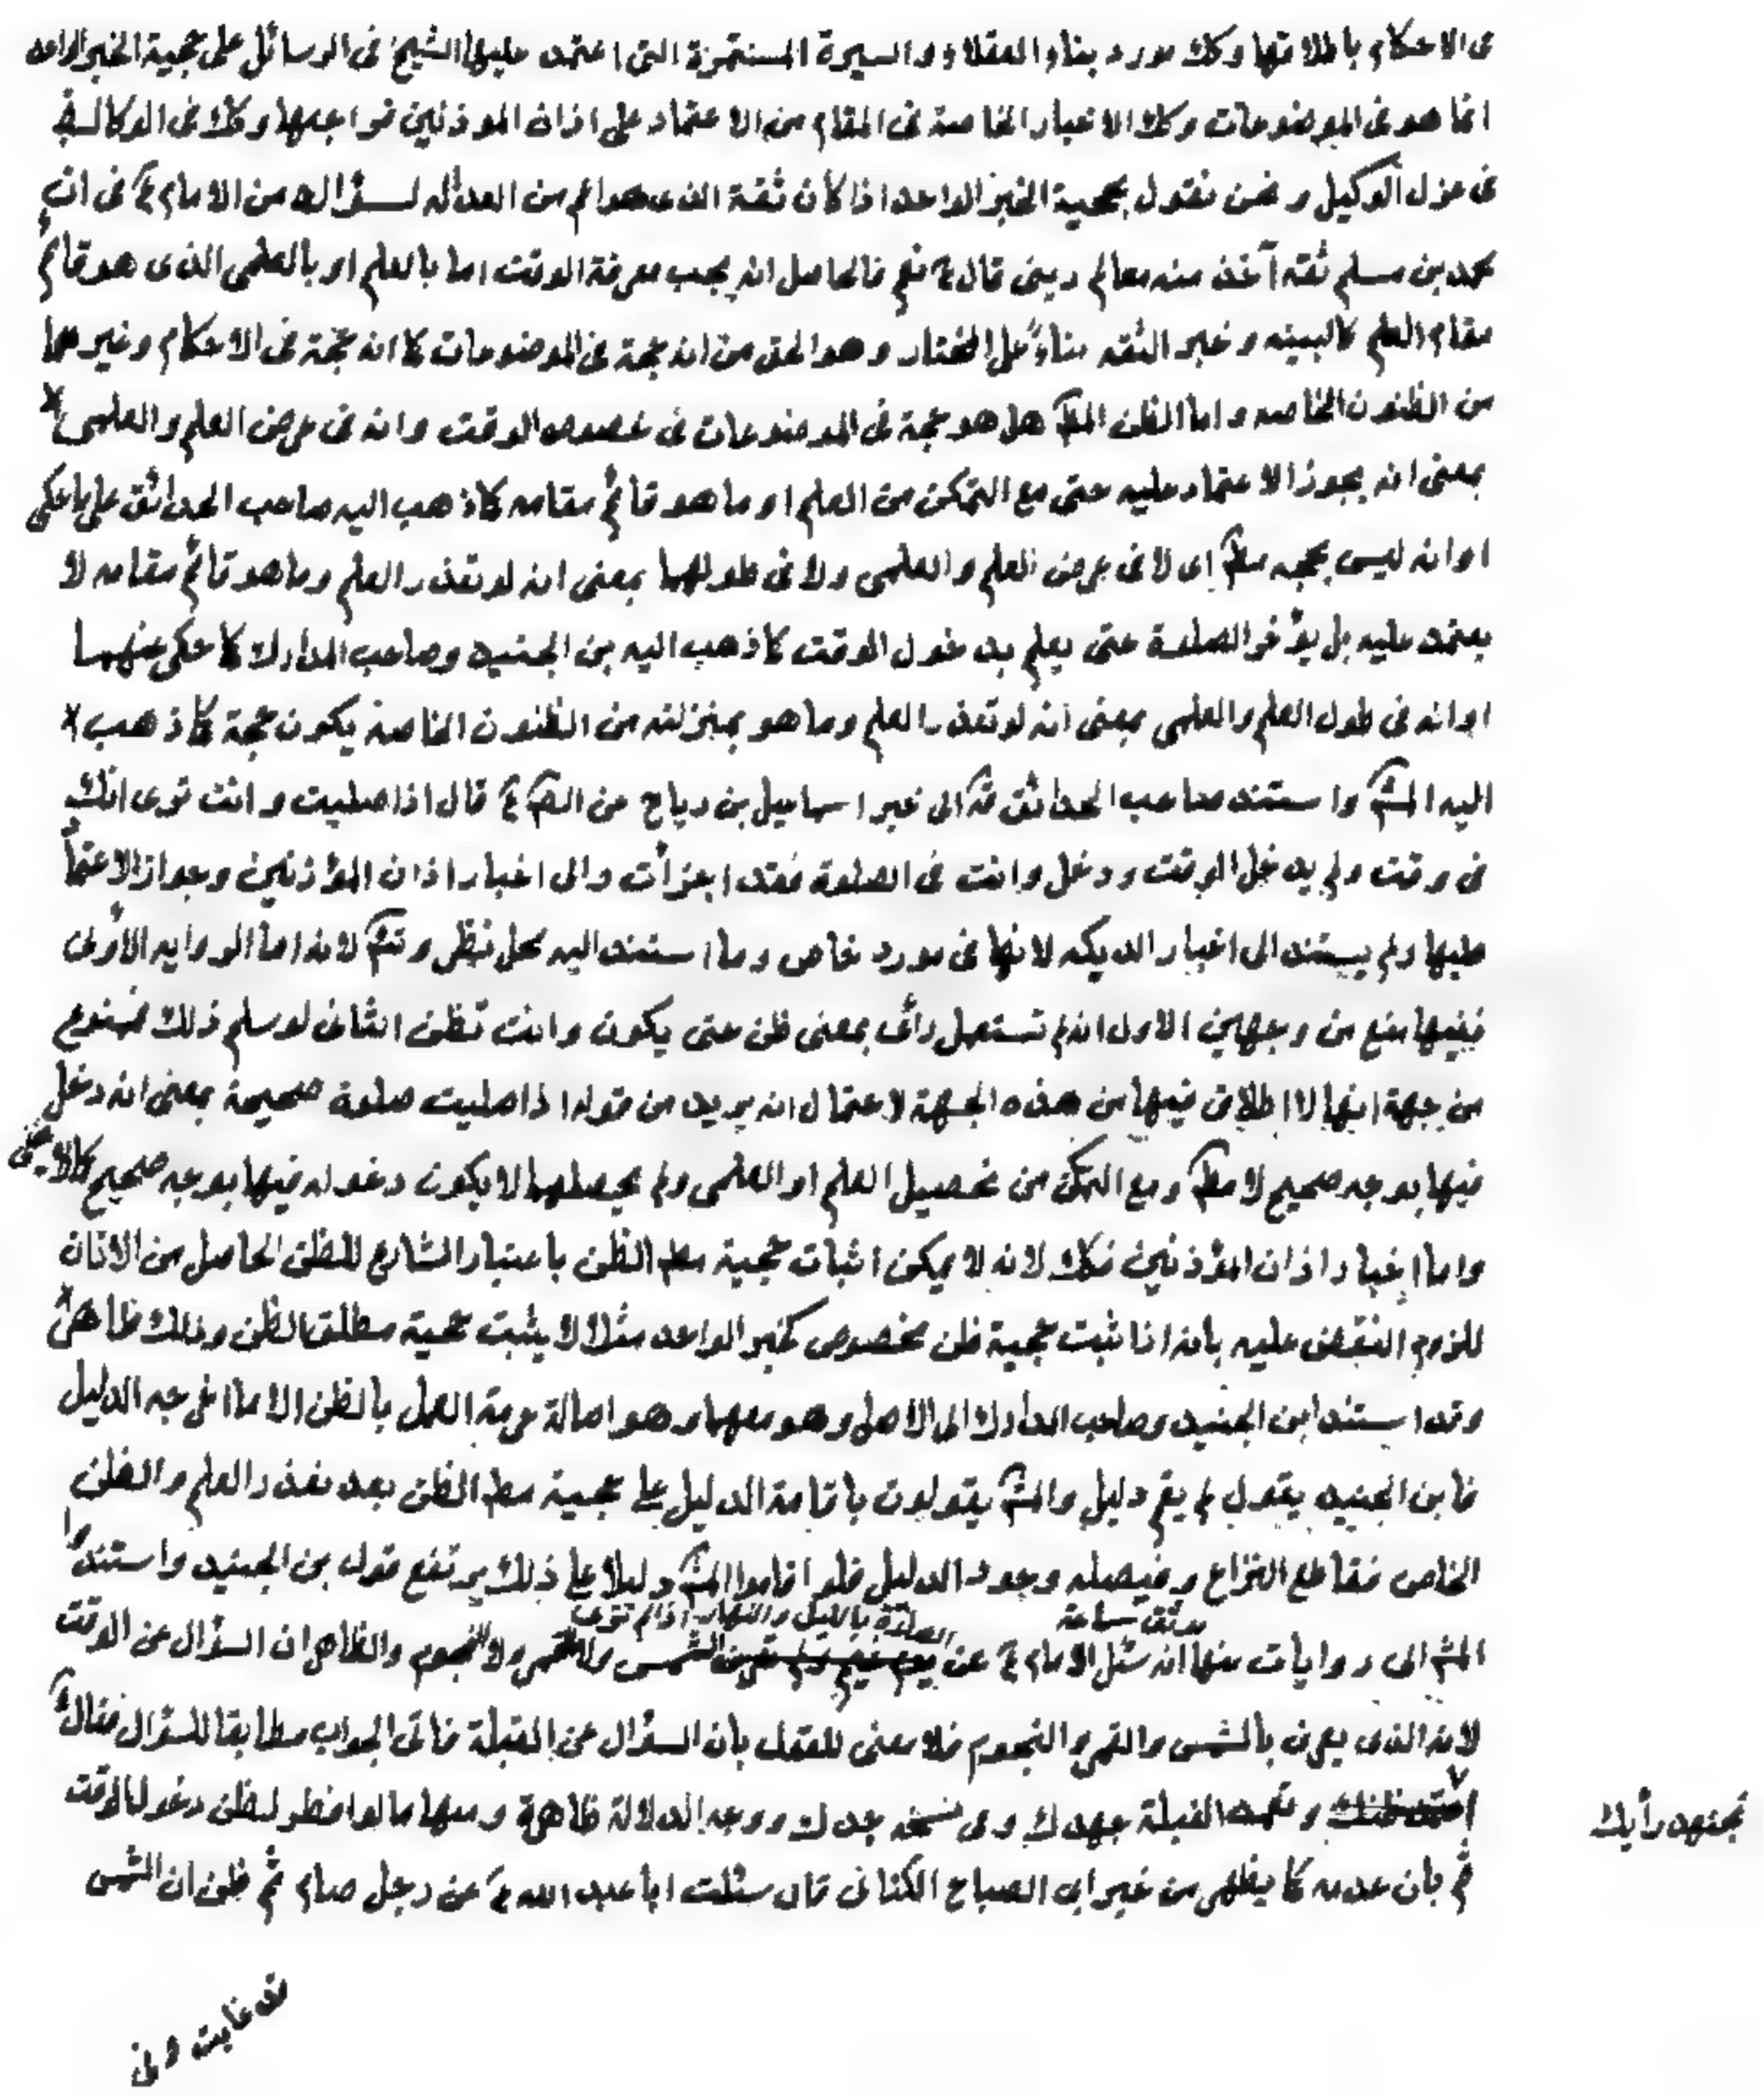 فى الاحكام باطلاقها وكك مورد بناء العقلاء والسيرة المستمرة التى اعتمد عليها الشيخ فى الرسائل على حجية الخبر الواحد
انما هو فى الموضوعات وكك الاخبار الخاصة فى المقام من الاعتماد على اذان الموذنين فراجعها وكك فى الوكالة
فى عزل الوكيل ونحن نقول بحجية الخبر الواحد اذا كان ثقة الذى هو اعم من العدالة لسؤاله من الامام ع فى ان
محمد بن مسلم ثقه آخذ منه معالم دينى قال ع نعم فالحاصل انه يجب معرفة الوقت اما بالعلم او بالعلمى الذى هو قائم
مقام العلم كالبينه وخبر الثقه بناءً على المختار وهو الحق من انه حجة فى الموضوعات كما انه حجة فى الاحكام وغيرهما
من الظنون الخاصه واما الظن المط هل هو حجة فى الموضوعات فى خصوص الوقت وانه فى عرض العلم والعلمى
بمعنى انه يجوز الاعتماد عليه حتى مع التمكن من العلم او ما هو قائم مقامه كما ذهب اليه صاحب الحدائق على ما حكى
او انه ليس بحجه مط اى لا فى عرض العلم والعلمى ولا فى طولهما بمعنى انه لو تعذر العلم وما هو قائم مقامه لا
يعتمد عليه بل يؤخر الصلوة حتى يعلم بدخول الوقت كما ذهب اليه بن الجنيد وصاحب المدارك كما حكى عنهما
او انه فى طول العلم والعلمى بمعنى انه لو تعذر العلم وما هو بمنزلته من الظنون الخاصة يكون حجة كما ذهب
اليه المش واستند صاحب الحدائق قه الى خبر اسماعيل بن رياح عن الص ع قال اذا صليت وانت ترى انك
فى وقت ولم يدخل الوقت ودخل وانت فى الصلوة فقد اجزأت والى اخبار اذان المؤذنين وجواز الاعتما
عليها ولم يستند الى اخبار الديكه لانها فى مورد خاص وما استند اليه محل نظر لانه اما الروايه الأولى
ففيها منع من وجهين الاول انه لم تستعمل رأى بمعنى ظن حتى يكون وانت تظن الثانى لو سلم ذلك فممنوع
من جهة انها لا اطلاق فيها من هذه الجهة لاحتمال انه يريد من قوله اذا صليت صلوة صحيحة بمعنى انه دخل
فيها بوجه صحيح لا مط ومع التمكن من تحصيل العلم او العلمى ولم يحصلهما لا يكون دخوله فيها بوجه صحيح كما لا يخفى
واما اخبار اذان المؤذنين فكك لانه لا يمكن اثبات حجية مط الظن باعتبار الشارع للظن الحاصل من الاذان
للزوم النقض عليه بانه اذا ثبت حجية ظن مخصوص كخبر الواحد مثلا لا يثبت حجية مطلق الظن وذلك ظاهر
وقد استند ابن الجنيد وصاحب المدارك الى الاصل وهو معهما وهو اصالة حرمة العمل بالظن الا ما اخرجه الدليل
فابن الجنيد يقول لم يقم دليل والمش يقولون باقامة الدليل على حجية مط الظن بعد تعذر العلم والظن
الخاص فقاطع النزاع وفيصله وجود الدليل فلو اقاموا المش دليلا على ذلك يرتفع قول بن الجنيد واستندوا
موثق سماعة الصلوة بالليل والنهار اذا لم ترى
المش الى روايات منها انه سئل الامام ع عن الشمس ولا القمر ولا النجوم والظاهر ان السؤال عن الوقت
لانه الذى يعرف بالشمس والقمر والنجوم فلا معنى للقول بان السؤال عن القبلة فاتى الجواب مطابقا للسؤال فقال ع
تجتهد رأيك
القبلة جهدك وفى نسخه جدك ووجه الدلالة ظاهرة ومنها ما لو افطر لظن دخول الوقت
ثم بان عدمه كما يظهر من خبر ابى الصباح الكنانى قال سئلت ابا عبد الله ع عن رجل صام ثم ظن ان الشمس
قد غابت وفى